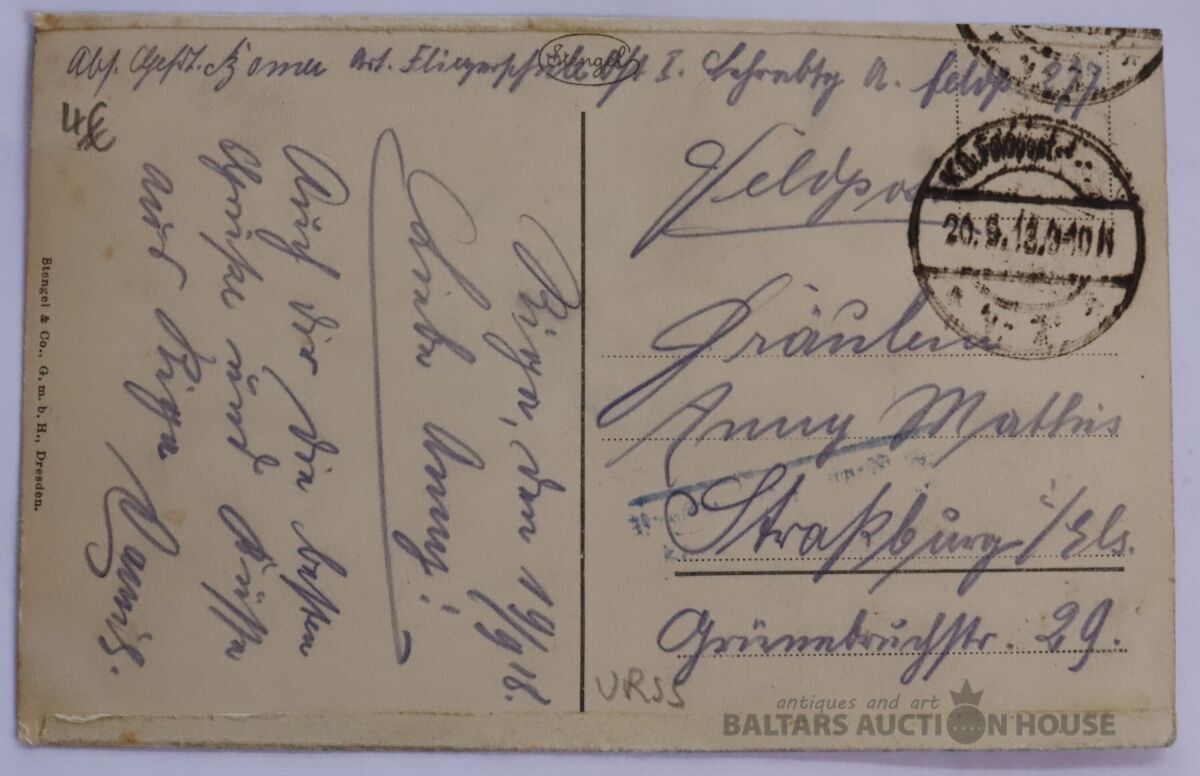 Abs. Gefr. Art. Fliegerschule Ost I. Lehrabtg A. Feldp 277
Stengel
Feldpost
K.D. Feldpost
20.9.18. 9-10 N
Fräulein
Anny Mathis
Straßburg i/Els.
Grünebruchstr. 29.
Riga, den 19/9 18.
Liebe Anny!
Auch dir die besten
Grüße und Küsse
aus Riga
Stengel & Co., G. m. b. H., Dresden.
URSS
antiques and art
BALTARS AUCTION HOUSE